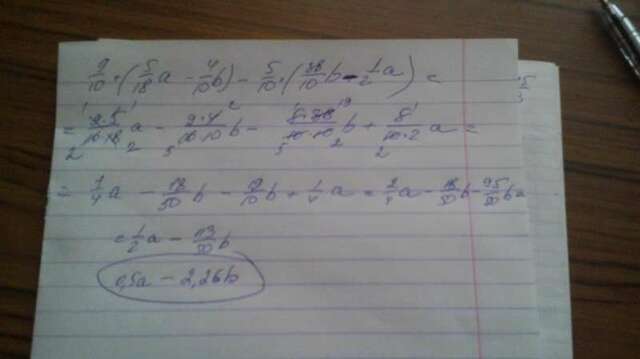 9/10 · (5/18 a - 4/10 b) - 5/10 · (38/10 b - 1/2 a) =
= 9·5/10·18 a - 9·4/10·10 b - 5·38/10·10 b + 5/10·2 a =
= 1/4 a - 18/50 b - 19/10 b + 1/4 a = 2/4 a - 18/50 b - 95/50 b =
= 1/2 a - 113/50 b
0,5a - 2,26b